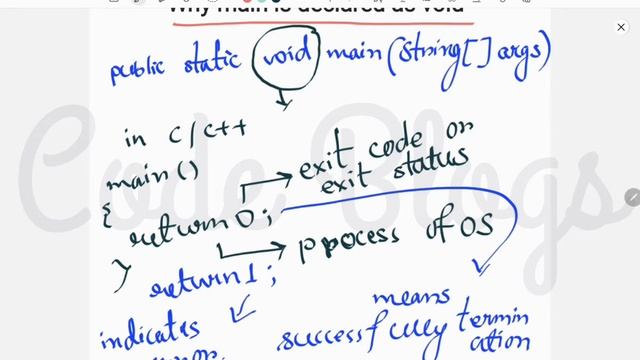 Why main is declared as void
public static void main(String[] args)
in C/C++
main()
{
return 0;
exit code or
exit status
process of OS
}
return 1;
indicates
error
means
successfully termin
ation
Code Blogs